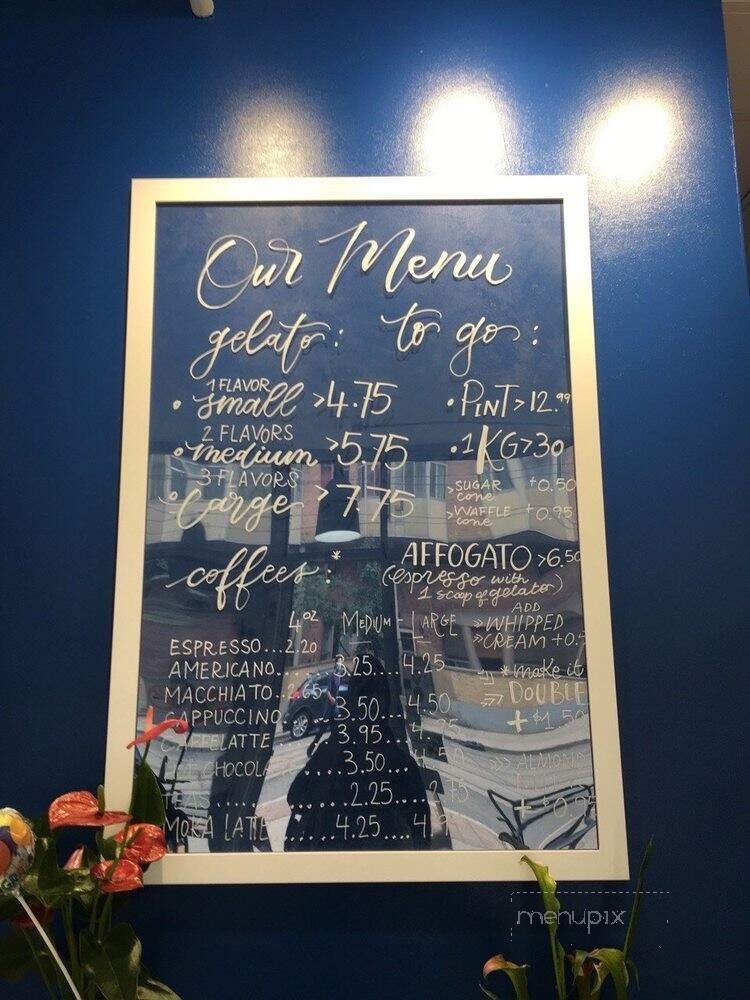 Our Menu
gelato: to go:
1 FLAVOR
• small >4.75
2 FLAVORS
• medium >5.75
3 FLAVORS
• Large >7.75
• PINT >12.99
• 1KG >30
>SUGAR cone +0.50
>WAFFLE cone +0.95
coffees:*
4oz MEDIUM - LARGE
ESPRESSO...2.20
AMERICANO.... 3.25....4.25
MACCHIATO..2.65
CAPPUCCINO....3.50....4.50
CAFFELATTE....3.95
3.50...
TEAS.......2.25...
MOKA LATTE....4.25....
AFFOGATO >6.50
(espresso with
1 scoop of gelato)
ADD
»WHIPPED
»CREAM
*make it
DOUBLE
+$1.50
menupix